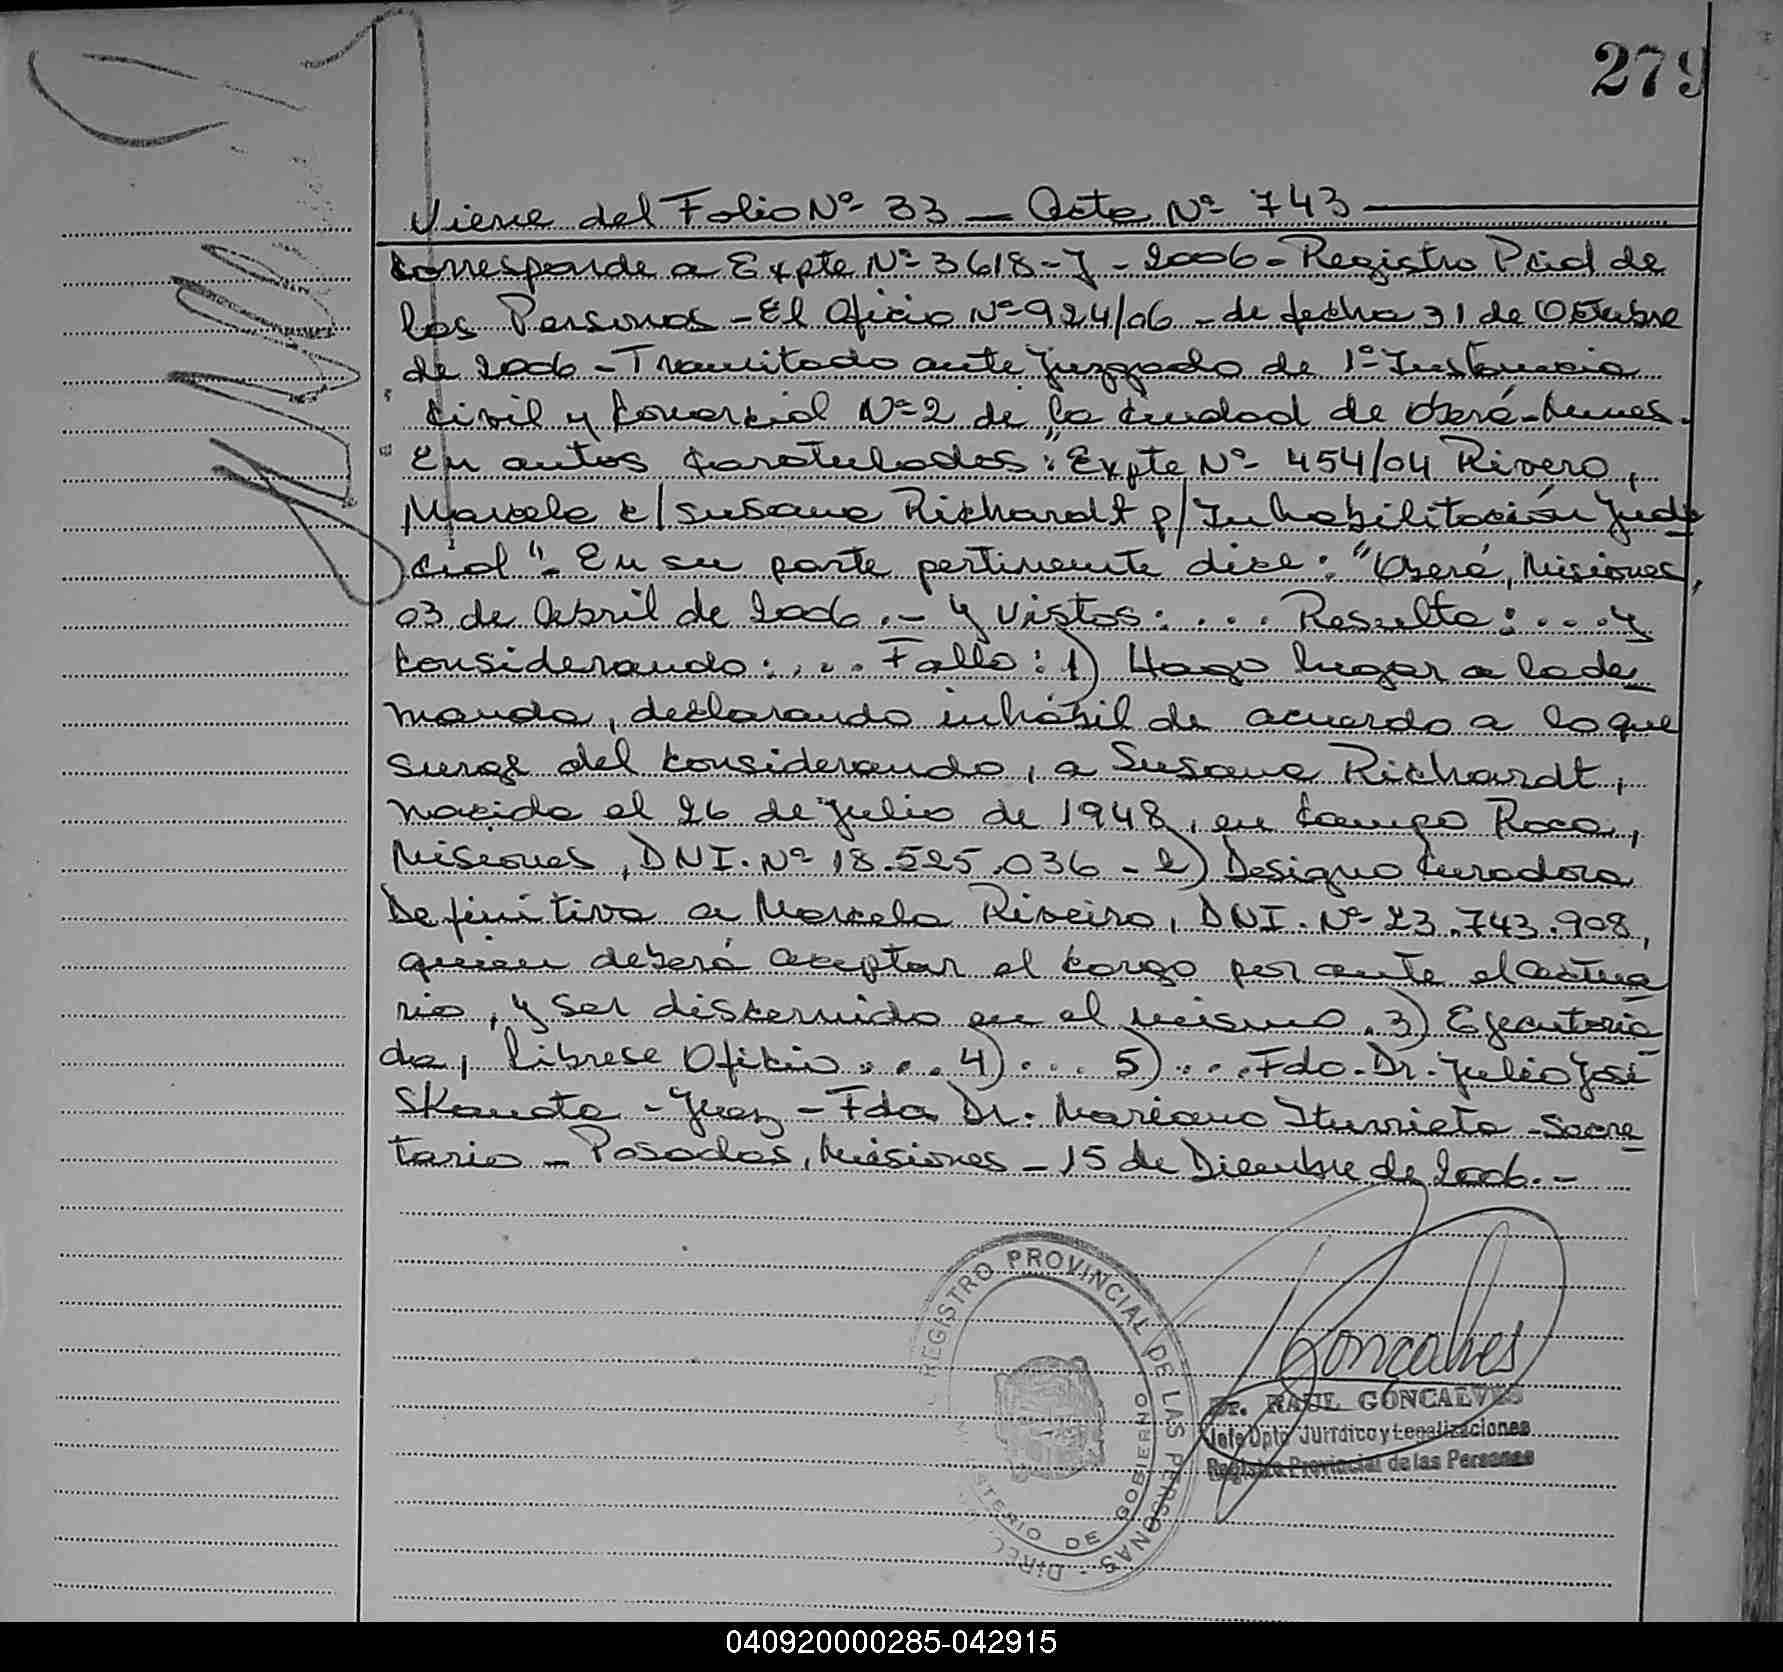 279
Viene del Folio Nº 33 — Acta Nº 743
Corresponde a Expte Nº 3618-J-2006 - Registro Pcial de
las Personas - El Oficio Nº 924/06 - de fecha 31 de Octubre
de 2006 - Tramitado ante Juzgado de 1º Instancia
Civil y Comercial Nº 2 de la ciudad de Oberá - Mnes.
En autos Caratulados: "Expte Nº 454/04 Rivero,
Marcela c/ Susana Richardt p/ Inhabilitación Judi
cial". En su parte pertinente dice: "Oberá, Misiones,
03 de Abril de 2006.- Y Vistos: .... Resulta: .... Y
Considerando: .... Fallo: 1) Hago lugar a la de
manda, declarando inhábil de acuerdo a lo que
surge del Considerando, a Susana Richardt,
nacida el 26 de Julio de 1948, en Campo Roca,
Misiones, DNI. Nº 18.525.036 - 2) Designo Curadora
Definitiva a Marcela Riveiro, DNI. Nº 23.743.908,
quien deberá aceptar el cargo por ante el actua
rio, y ser discernido en el mismo. 3) Ejecutoria
da, líbrese Oficio .... 4) ... 5) .... Fdo. Dr. Julio José
Skanata - Juez - Fdo Dr. Mariano Iturrieta - Secre
tario - Posadas, Misiones - 15 de Diciembre de 2006.-
REGISTRO PROVINCIAL DE LAS PERSONAS
MINISTERIO DE GOBIERNO
Goncalves
Dr. RAUL GONCALVES
Jefe Dpto Jurídico y Legalizaciones
Registro Provincial de las Personas
040920000285-042915